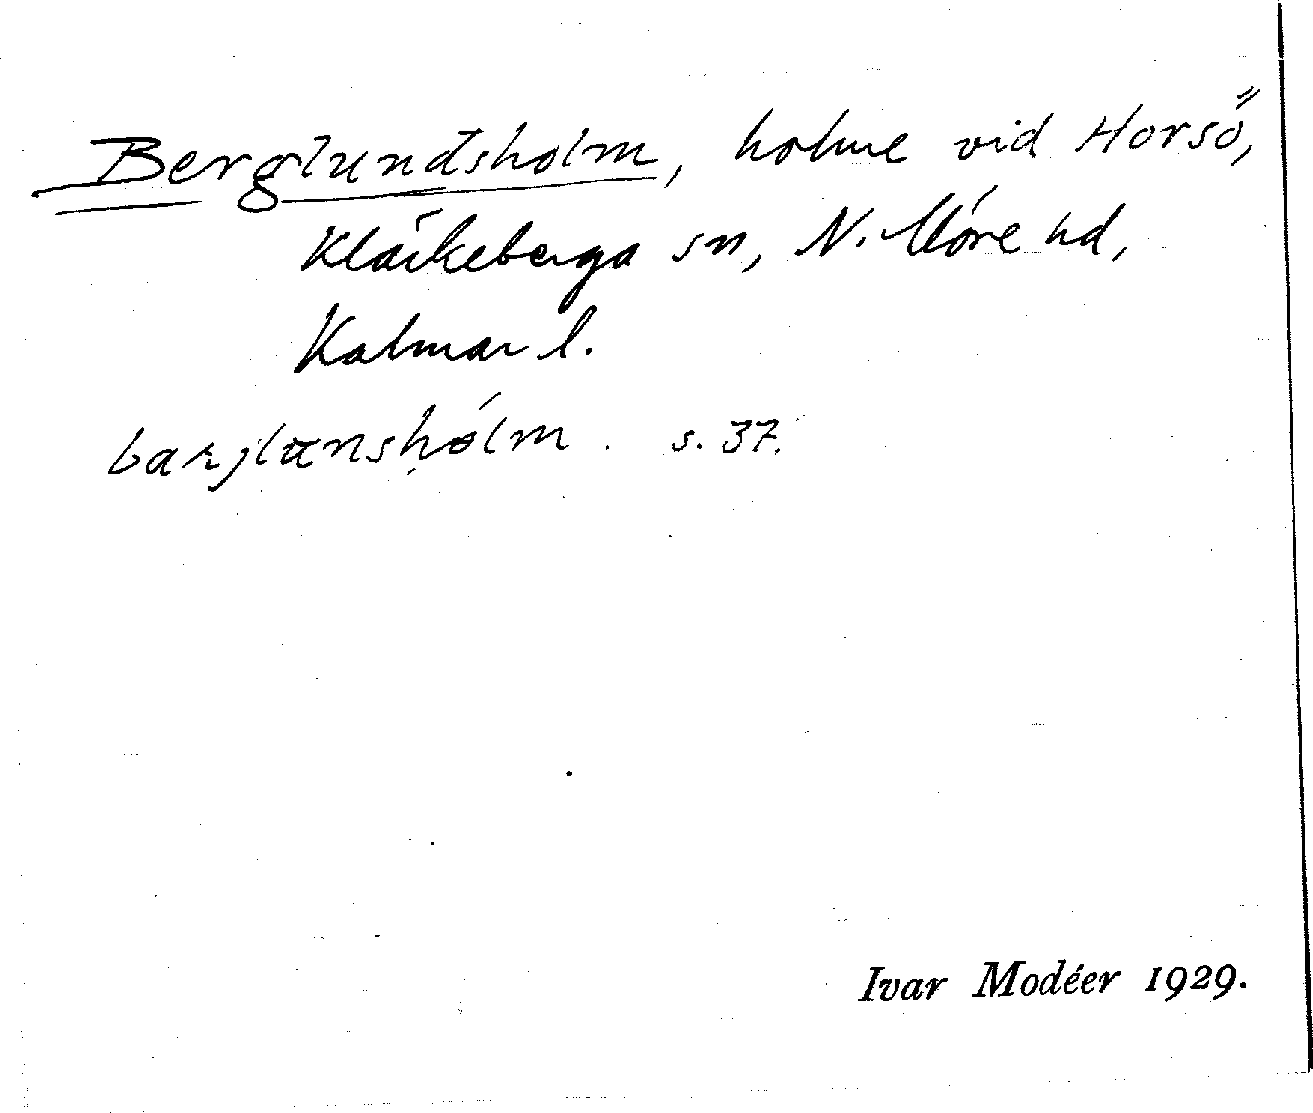 Berglundsholm, holme vid Horsö,
Kläckeberga sn, N. Möre hd,
Kalmar l.
barjlansholm. s. 37.
Ivar Modéer 1929.